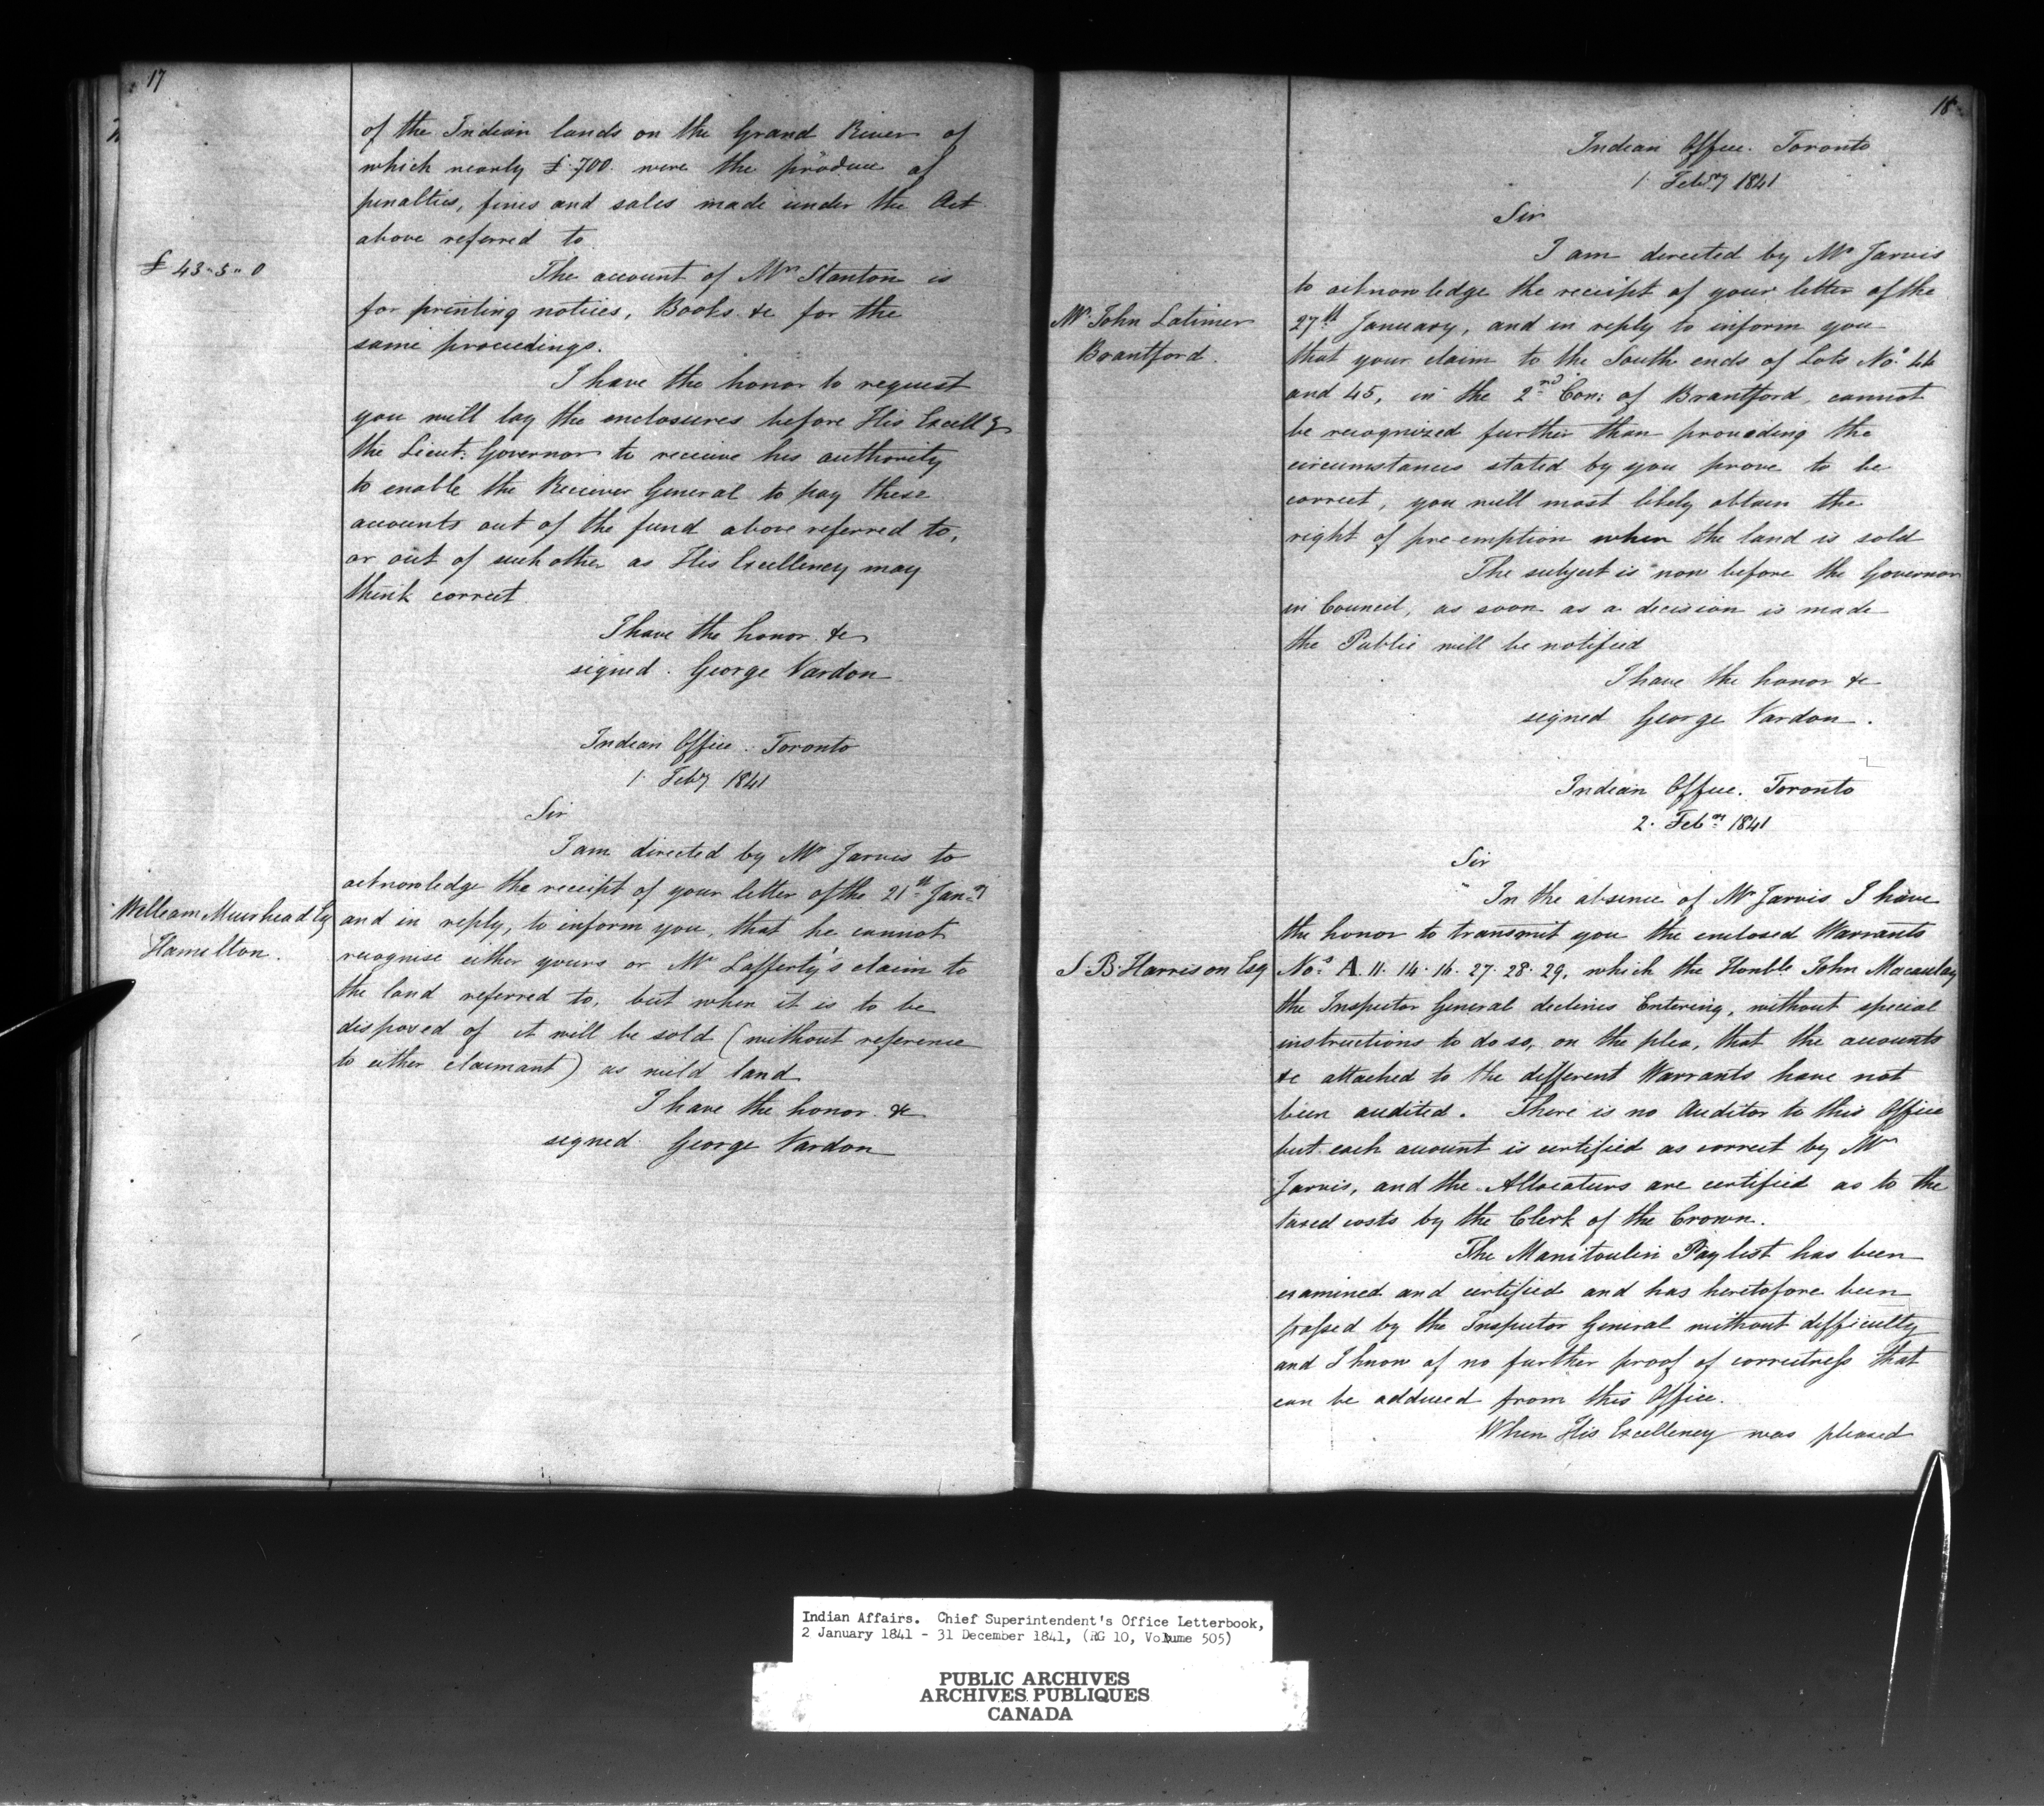 17
of the Indian lands on the Grand River of
which nearly £700. were the produce of
penalties, fines and sales made under the Act
above referred to.
£ 43-5-0
The account of Mr Stanton is
for printing notices, Books &c for the
same proceedings.
I have the honor to request
you will lay the enclosures before His Excelly
the Lieut: Governor to receive his authority
to enable the Receiver General to pay these
accounts out of the fund above referred to,
or out of such other as His Excellency may
think correct.
I have the honor &c
signed. George Vardon
Indian Office. Toronto
1. Feby 1841
Sir
I am directed by Mr Jarvis to
acknowledge the receipt of your letter of the 21st Jany
William Muirhead Esq
Hamilton.
and in reply, to inform you, that he cannot
recognise either yours or Mr Lafferty's claim to
the land referred to, but when it is to be
disposed of it will be sold (without reference
to either claimant) as wild land
I have the honor &c
signed George Vardon
18
Indian Office. Toronto
1. Febry 1841
Sir
I am directed by Mr Jarvis
to acknowledge the receipt of your letter of the
Mr John Latimer
Brantford.
27th January, and in reply to inform you
that your claim to the South ends of Lots No. 44
and 45, in the 2nd Con: of Brantford, cannot
be recognized further than provading the
circumstances stated by you prove to be
correct, you will most likely obtain the
right of pre-emption when the land is sold
The subject is now before the Governor
in Council, as soon as a decision is made
the Public will be notified
I have the honor &c
signed George Vardon.
Indian Office. Toronto
2. Feby 1841
Sir
In the absence of Mr Jarvis I have
the honor to transmit you the enclosed Warrants
S. B. Harrison Esq
Nos A 11. 14. 16. 27. 28. 29, which the Honble John Macaulay
the Inspector General declines Entering, without special
instructions to do so, on the plea, that the accounts
&c attached to the different Warrants have not
been audited. There is no Auditor to this Office
but each account is certified as correct by Mr
Jarvis, and the Allocaturs are certified as to the
taxed costs by the Clerk of the Crown.
The Manitoulin Paylist has been
examined and certified and has heretofore been
passed by the Inspector General without difficulty
and I know of no further proof of correctness that
can be adduced from this Office.
When His Excellency was pleased
Indian Affairs. Chief Superintendent's Office Letterbook,
2 January 1841 - 31 December 1841, (RG 10, Volume 505)
PUBLIC ARCHIVES
ARCHIVES PUBLIQUES
CANADA